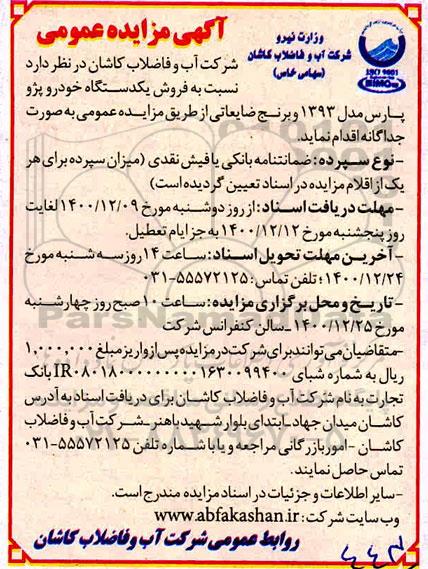 آگهی مزایده عمومی
وزارت نیرو
شرکت آب و فاضلاب کاشان
(سهامی خاص)
ISO 9001
شرکت آب و فاضلاب کاشان در نظر دارد
نسبت به فروش یکدستگاه خودرو پژو
پارس مدل ۱۳۹۳ و برنج ضایعاتی از طریق مزایده عمومی به صورت
جداگانه اقدام نماید.
-نوع سپرده: ضمانتنامه بانکی یا فیش نقدی (میزان سپرده برای هر
یک از اقلام مزایده در اسناد تعیین گردیده است)
-مهلت دریافت اسناد: از روز دوشنبه مورخ ۱۴۰۰/۱۲/۰۹ لغایت
روز پنجشنبه مورخ ۱۴۰۰/۱۲/۱۲ به جز ایام تعطیل.
-آخرین مهلت تحویل اسناد: ساعت ۱۴ روز سه شنبه مورخ
۱۴۰۰/۱۲/۲۴؛ تلفن تماس: ۵۵۵۷۲۱۲۵-۰۳۱
-تاریخ و محل برگزاری مزایده: ساعت ۱۰ صبح روز چهارشنبه
مورخ ۱۴۰۰/۱۲/۲۵ ـ سالن کنفرانس شرکت
-متقاضیان می‌توانند برای شرکت در مزایده پس از واریز مبلغ ۱,۰۰۰,۰۰۰
ریال به شماره شبای IR۰۸۰۱۸۰۰۰۰۰۰۰۰۰۰۱۶۳۰۰۹۹۴۰۰ بانک
تجارت به نام شرکت آب و فاضلاب کاشان برای دریافت اسناد به آدرس
کاشان میدان جهاد ـ ابتدای بلوار شهید باهنر ـ شرکت آب و فاضلاب
کاشان - امور بازرگانی مراجعه و یا با شماره تلفن ۵۵۵۷۲۱۲۵-۰۳۱
تماس حاصل نمایند.
-سایر اطلاعات و جزئیات در اسناد مزایده مندرج است.
وب سایت شرکت: www.abfakashan.ir
روابط عمومی شرکت آب و فاضلاب کاشان